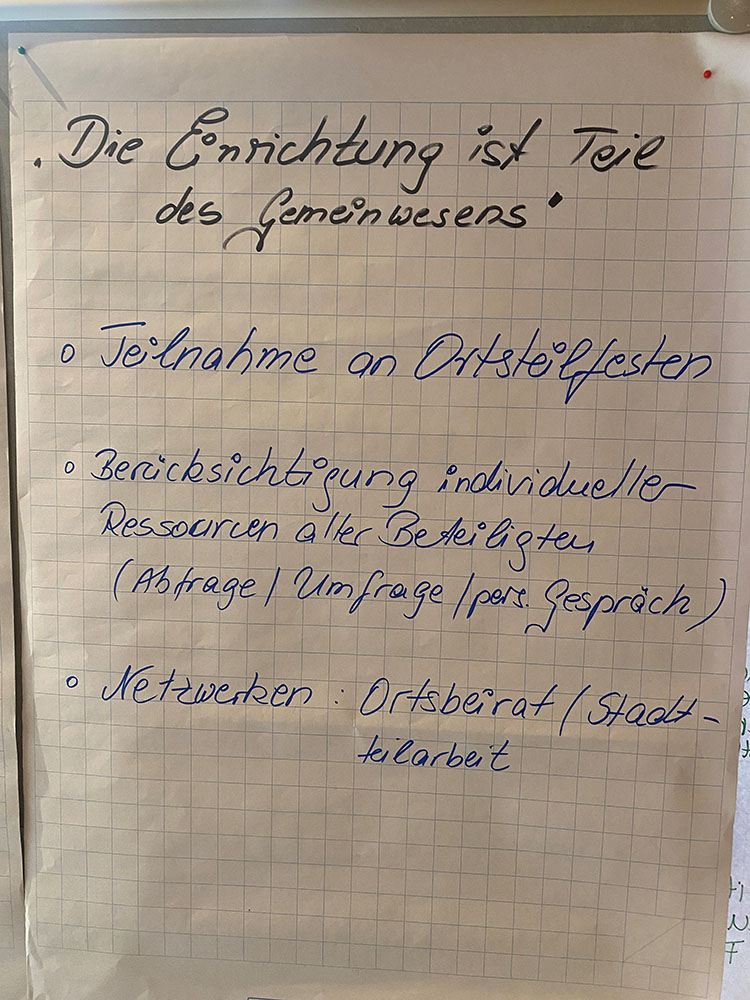 "Die Einrichtung ist Teil
des Gemeinwesens"
o Teilnahme an Ortsteilfesten
o Berücksichtigung individueller
Ressourcen aller Beteiligten
(Abfrage / Umfrage / pers. Gespräch)
o Netzwerken : Ortsbeirat / Stadt-
teilarbeit